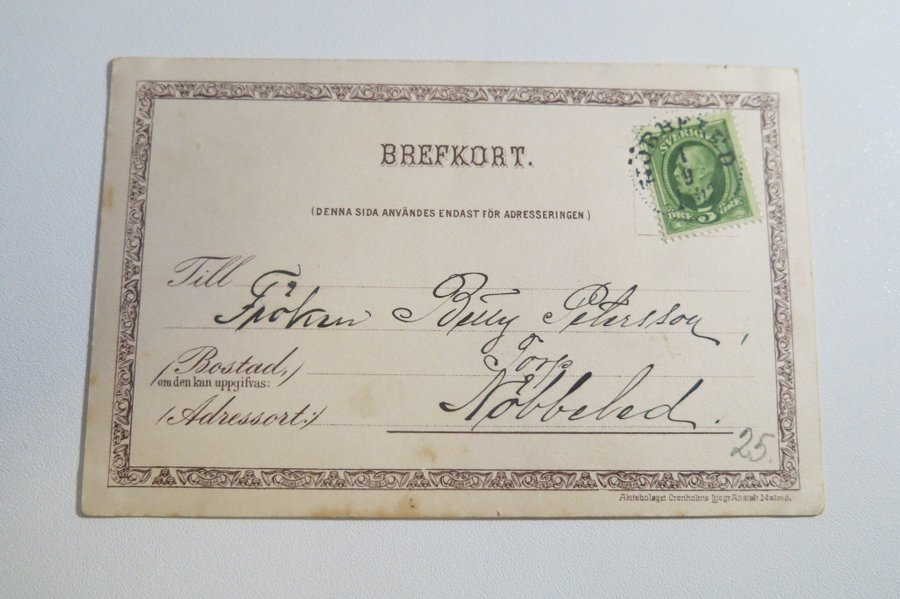 BREFKORT.
SVERIGE
ÖRE 5 ÖRE
(DENNA SIDA ANVÄNDES ENDAST FÖR ADRESSERINGEN.)
Till
Fröken Betty Petersson,
(Bostad,)
om den kan uppgifvas:
Torp
(Adressort:)
Nöbbeled.
25.
Aktiebolaget Cronholms Lytogr. Anstalt Malmö.